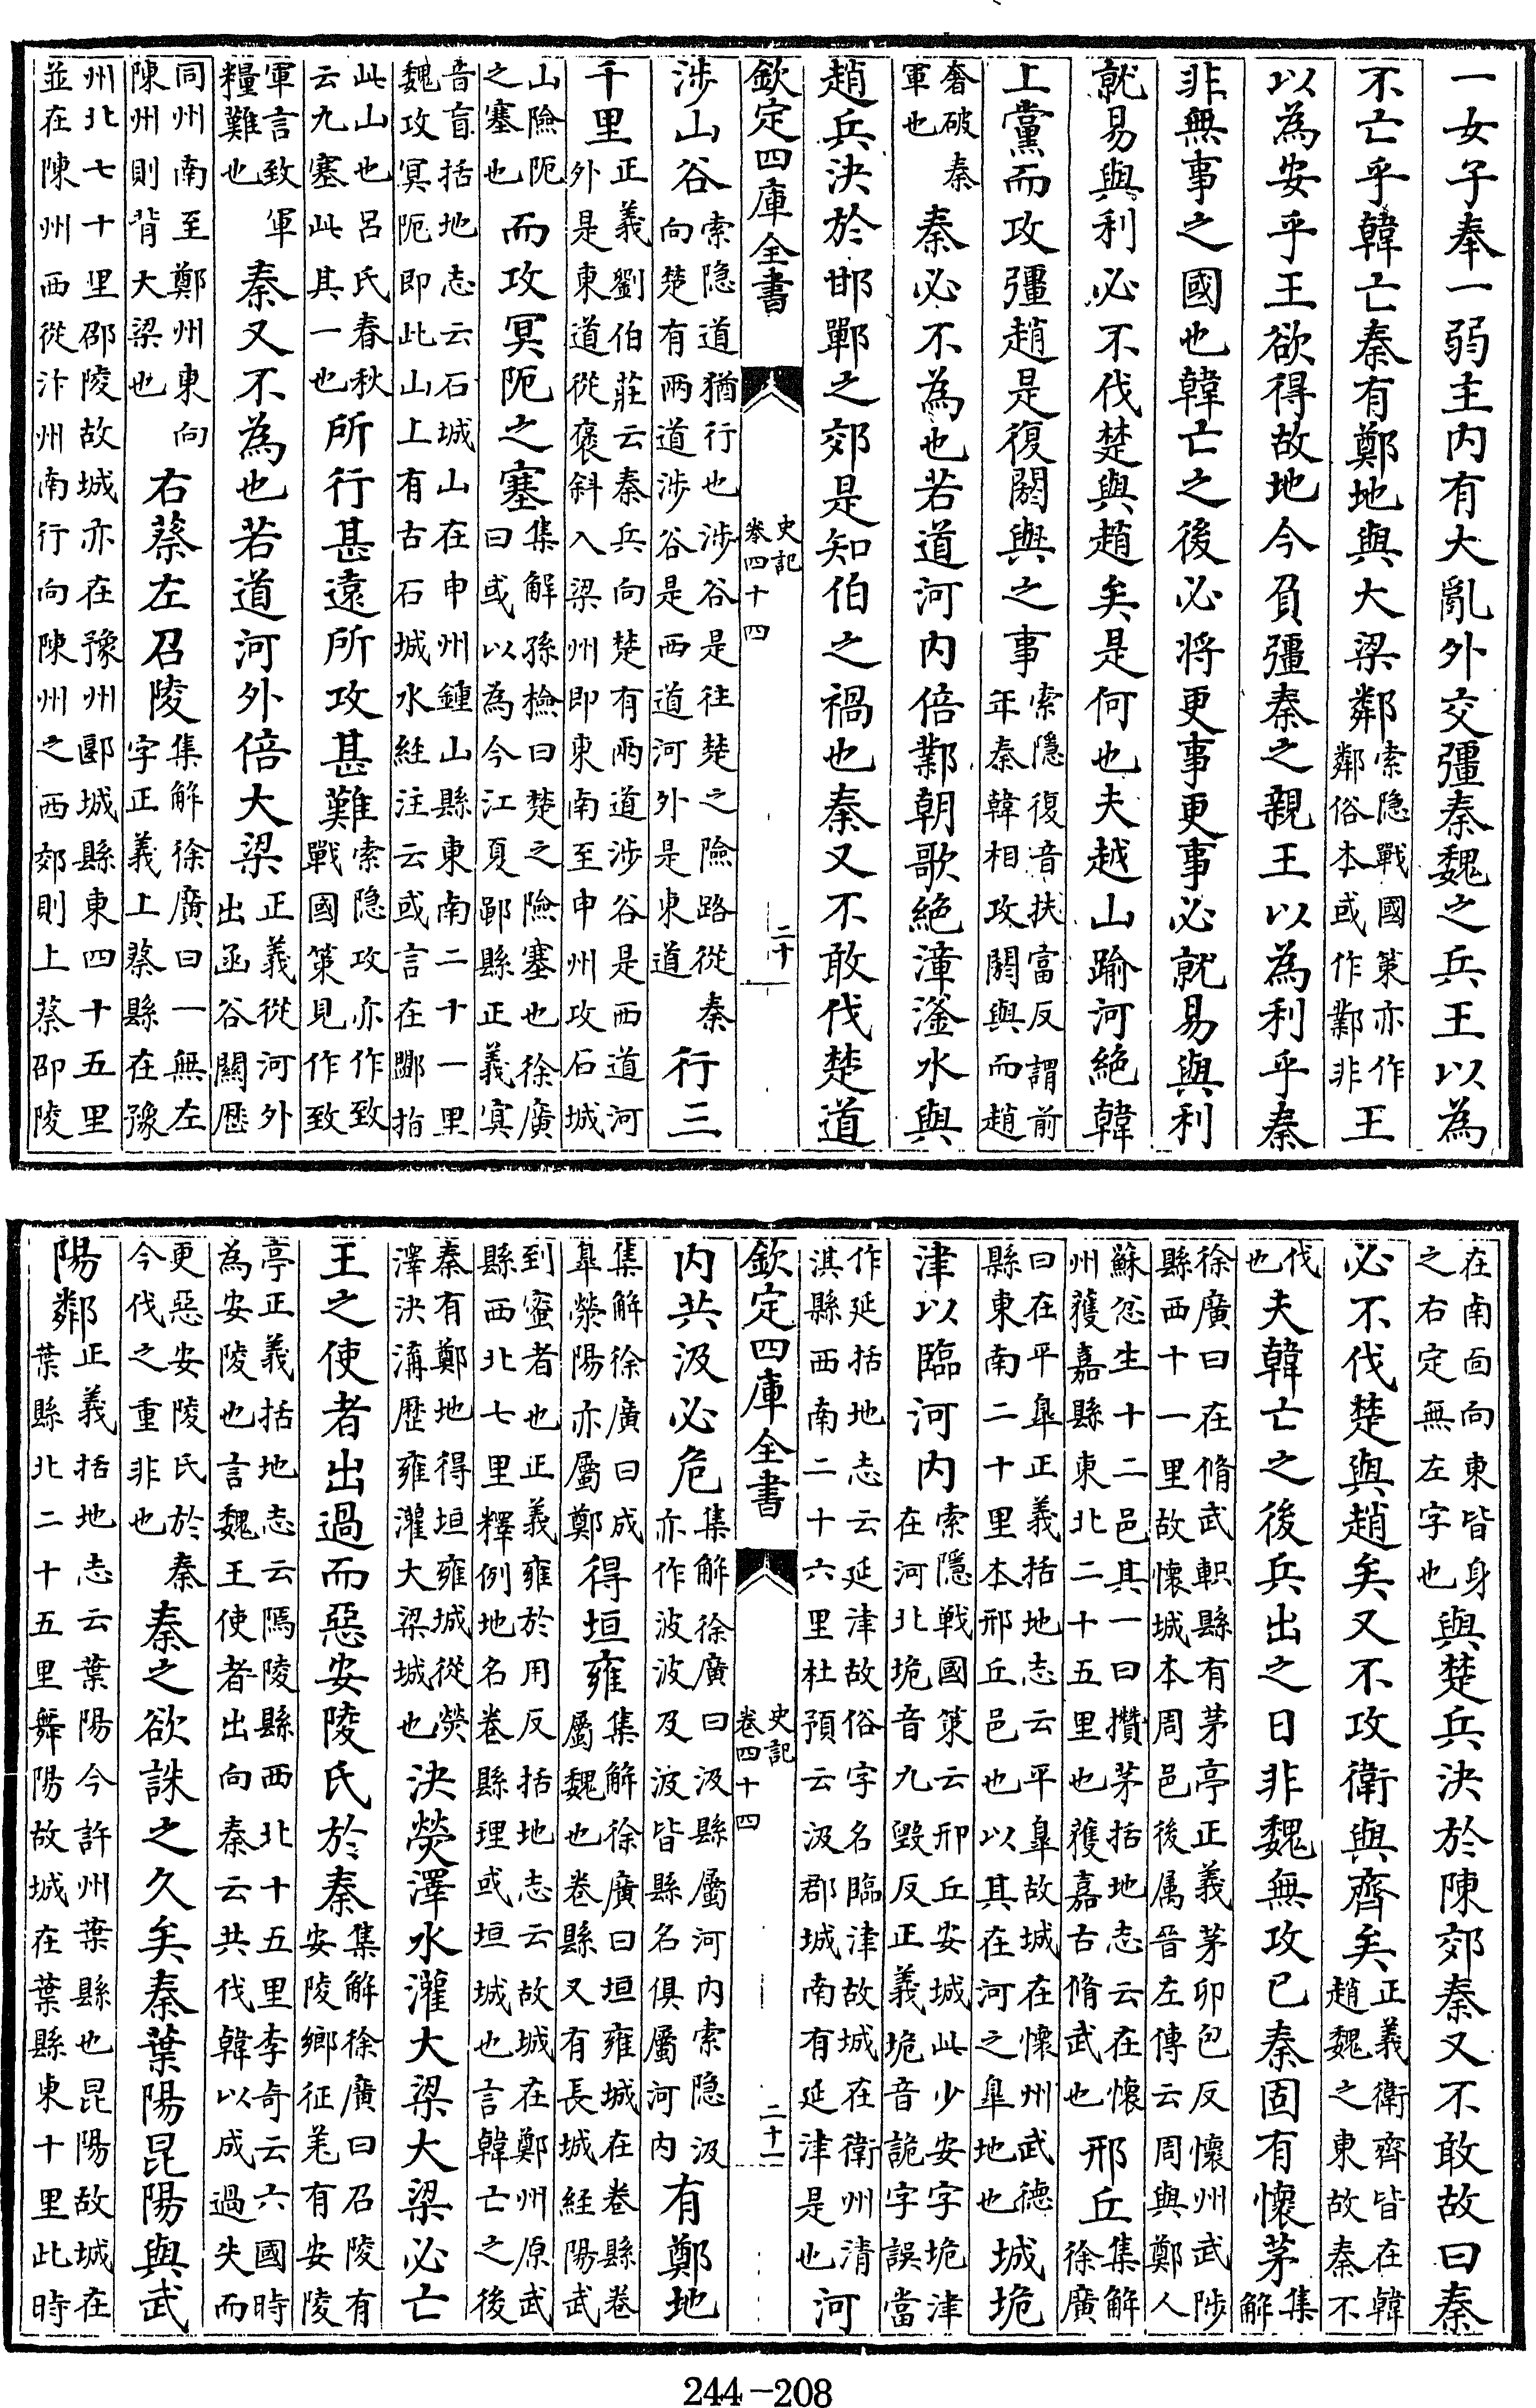 一女子奉一弱主内有大亂外交彊秦魏之兵王以為
不亡乎韓亡秦有鄭地與大梁鄰索隠戰國策亦作鄰俗本或作鄴非王
以為安乎王欲得故地今負彊秦之親王以為利乎秦
非無事之國也韓亡之後必將更事更事必就易與利
就易與利必不伐楚與趙矣是何也夫越山踰河絶韓
上黨而攻彊趙是復閼與之事索隱復音扶富反謂前年秦韓相攻閼與而趙
奢破秦軍也秦必不為也若道河内倍鄴朝歌絶漳滏水與
趙兵決於邯鄲之郊是知伯之禍也秦又不敢伐楚道
欽定四庫全書
史記卷四十四
二十
涉山谷索隠道猶行也涉谷是往楚之險路從秦向楚有兩道涉谷是西道河外是東道行三
千里正義劉伯莊云秦兵向楚有兩道涉谷是西道河外是東道從褒斜入梁州即東南至申州攻石城
山險阨之塞也而攻冥阨之塞集解孫檢曰楚之險塞也徐廣曰或以為今江夏鄳縣正義冥
音盲括地志云石城山在申州鍾山縣東南二十一里魏攻冥阨即此山上有古石城水經注云或言在鄳指
此山也呂氏春秋云九塞此其一也所行甚遠所攻甚難索隐攻亦作致戰國策見作致
軍言致軍糧難也秦又不為也若道河外倍大梁正義從河外出函谷關歴
同州南至鄭州東向陳州則背大梁也右蔡左召陵集解徐廣曰一無左字正義上蔡縣在豫
州北七十里邵陵故城亦在豫州郾城縣東四十五里並在陳州西從汴州南行向陳州之西郊則上蔡卲陵
在南面向東皆身之右定無左字也與楚兵決於陳郊秦又不敢故曰秦
必不伐楚與趙矣又不攻衛與齊矣正義衛齊皆在韓趙魏之東故秦不
伐也夫韓亡之後兵出之日非魏無攻已秦固有懷茅集解
徐廣曰在脩武軹縣有茅亭正義茅卯包反懷州武陟縣西十一里故懷城本周邑後属晉左傳云周與鄭人
蘇忿生十二邑其一曰攢茅括地志云在懷州獲嘉縣東北二十五里也獲嘉古脩武也邢丘集解徐廣
曰在平臯正義括地志云平臯故城在懷州武德縣東南二十里本邢丘邑也以其在河之臯地也城垝
津以臨河内索隱戰國策云邢丘安城此少安字垝津在河北垝音九毀反正義垝音詭字誤當
作延括地志云延津故俗字名臨津故城在衛州清淇縣西南二十六里杜預云汲郡城南有延津是也河
欽定四庫全書
史記卷四十四
二十一
内共汲必危集解徐廣曰汲縣屬河内索隐汲亦作波波及汲皆縣名俱屬河内有鄭地
集解徐廣曰成臯滎陽亦屬鄭得垣雍集解徐廣曰垣雍城在卷縣卷屬魏也卷縣又有長城經陽武
到宻者也正義雍於用反括地志云故城在鄭州原武縣西北七里釋例地名卷縣理或垣城也言韓亡之後
秦有鄭地得垣雍城從熒澤決溝歴雍灌大梁城也決熒澤水灌大梁大梁必亡
王之使者出過而惡安陵氏於秦集解徐廣曰召陵有安陵鄉征羌有安陵
亭正義括地志云隖陵縣西北十五里李奇云六國時為安陵也言魏王使者出向秦云共伐韓以成過失而
更惡安陵氏於秦今伐之重非也秦之欲誅之久矣秦葉陽昆陽與武
陽鄰正義括地志云葉陽今許州葉縣也昆陽故城在葉縣北二十五里舞陽故城在葉縣東十里此時
244-208